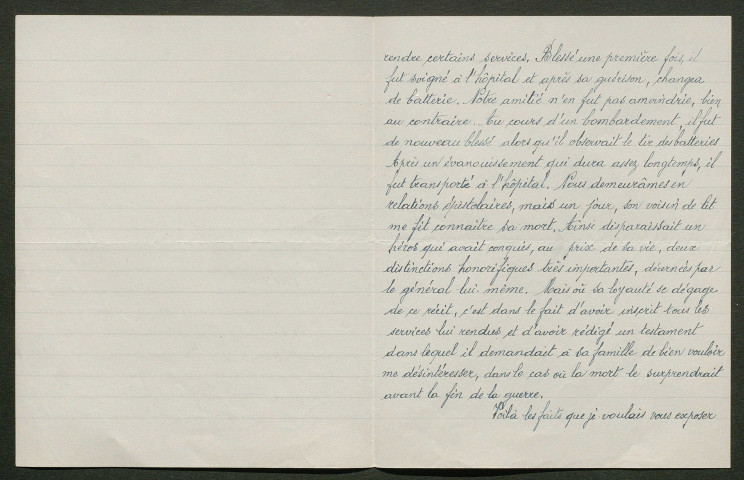 rendre certains services. Blessé une première fois, il
fut soigné à l'hôpital et après sa guérison, changea
de batterie. Notre amitié n'en fut pas amoindrie, bien
au contraire. Au cours d'un bombardement, il fut
de nouveau blessé alors qu'il observait le tir des batteries
Après un évanouissement qui dura assez longtemps, il
fut transporté à l'hôpital. Nous demeurâmes en
relations épistolaires, mais un jour, son voisin de lit
me fit connaître sa mort. Ainsi disparaissait un
héros qui avait conquis, au prix de sa vie, deux
distinctions honorifiques très importantes, décernées par
le général lui même. Mais où sa loyauté se dégage
de ce récit, c'est dans le fait d'avoir inscrit tous les
services lui rendus et d'avoir rédigé un testament
dans lequel il demandait à sa famille de bien vouloir
me désintéresser, dans le cas où la mort le surprendrait
avant la fin de la guerre.
Voilà les faits que je voulais vous exposer